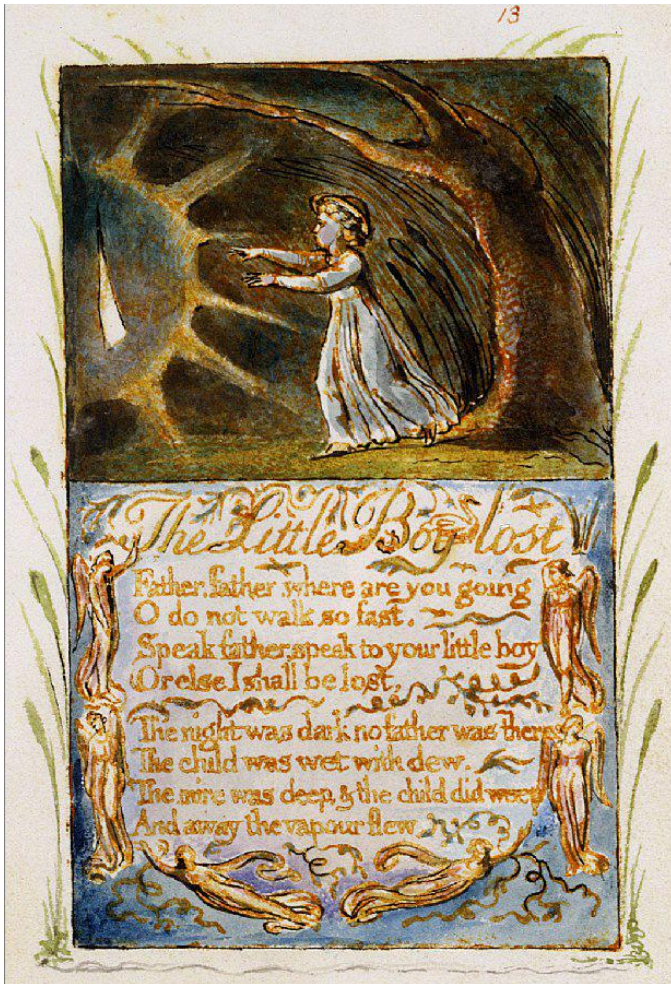 13
The Little Boy lost
Father, father, where are you going
O do not walk so fast.
Speak father, speak to your little boy
Or else I shall be lost,
The night was dark no father was there
The child was wet with dew.
The mire was deep, & the child did weep
And away the vapour flew